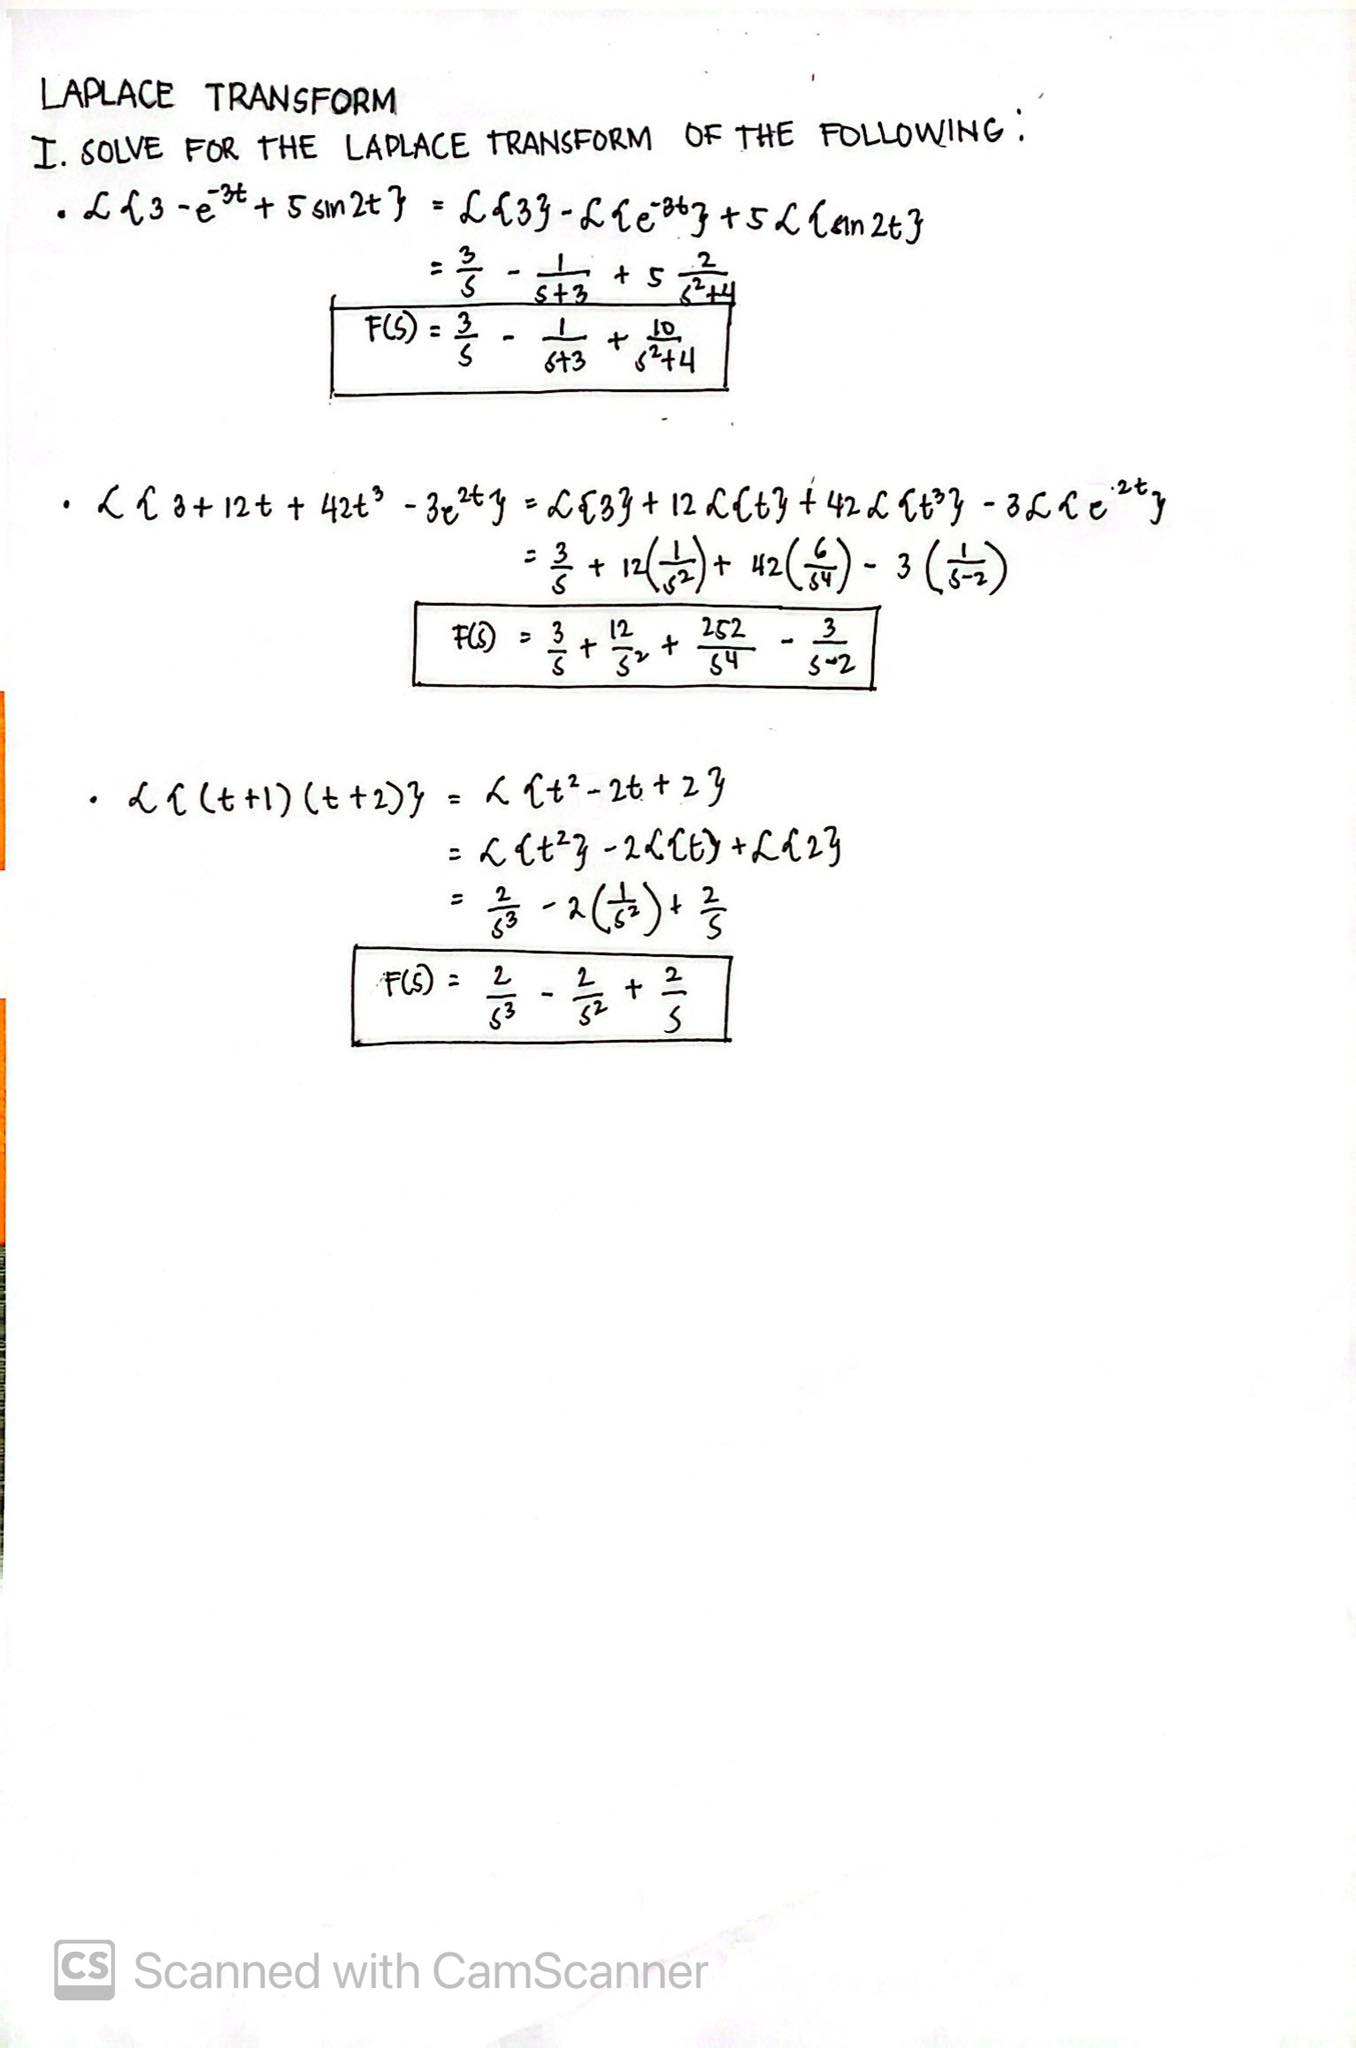 LAPLACE TRANSFORM
I. SOLVE FOR THE LAPLACE TRANSFORM OF THE FOLLOWING:
• ℒ{3 - e^-3t + 5 sin 2t} = ℒ{3} - ℒ{e^-3t} + 5ℒ{sin 2t}
= 3/s - 1/(s+3) + 5 2/(s²+4)
F(s) = 3/s - 1/(s+3) + 10/(s²+4)
• ℒ{3 + 12t + 42t³ - 3e^2t} = ℒ{3} + 12ℒ{t} + 42ℒ{t³} - 3ℒ{e^2t}
= 3/s + 12(1/s²) + 42(6/s⁴) - 3(1/(s-2))
F(s) = 3/s + 12/s² + 252/s⁴ - 3/(s-2)
• ℒ{(t+1)(t+2)} = ℒ{t² - 2t + 2}
= ℒ{t²} - 2ℒ{t} + ℒ{2}
= 2/s³ - 2(1/s²) + 2/s
F(s) = 2/s³ - 2/s² + 2/s
CS Scanned with CamScanner